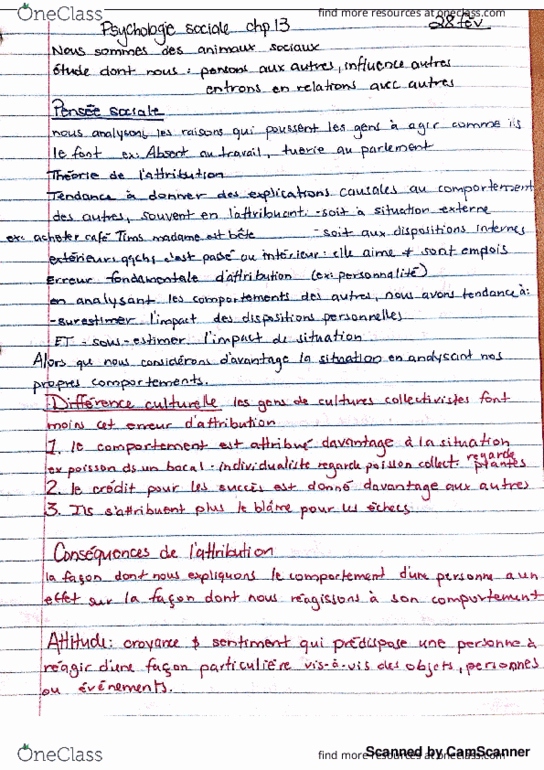 OneClass
find more resources at oneclass.com
Psychologie sociale chp.13
28 fév
Nous sommes des animaux sociaux
étude dont nous : pensons aux autres, influence autres
entrons en relations avec autres
Pensée sociale
nous analysons les raisons qui poussent les gens à agir comme ils
le font ex: Absent au travail, tuerie au parlement
Théorie de l'attribution
Tendance à donner des explications causales au comportement
des autres, souvent en l'attribuant: - soit à situation externe
ex: acheter café Tims madame est bête - soit aux dispositions internes
extérieur: qqch s'est passé ou intérieur: elle aime $ sont emplois
Erreur fondamentale d'attribution (ex: personnalité)
en analysant les comportements des autres, nous avons tendance à:
- surestimer l'impact des dispositions personnelles
ET - sous-estimer l'impact de situation
Alors que nous considérons d'avantage la situation en analysant nos
propres comportements.
Différence culturelle les gens de cultures collectivistes font
moins cet erreur d'attribution
1. le comportement est attribué davantage à la situation
ex poisson ds un bocal · individualiste regarde poisson collect. regarde plantes
2. le crédit pour les succès est donné davantage aux autres
3. Ils s'attribuent plus le blâme pour les échecs
Conséquences de l'attribution
la façon dont nous expliquons le comportement d'une personne a un
effet sur la façon dont nous réagissons à son comportement
Attitude: croyance & sentiment qui prédispose une personne à
réagir d'une façon particulière vis-à-vis des objets, personnes
ou événements.
OneClass
find more resources at oneclass.com
Scanned by CamScanner